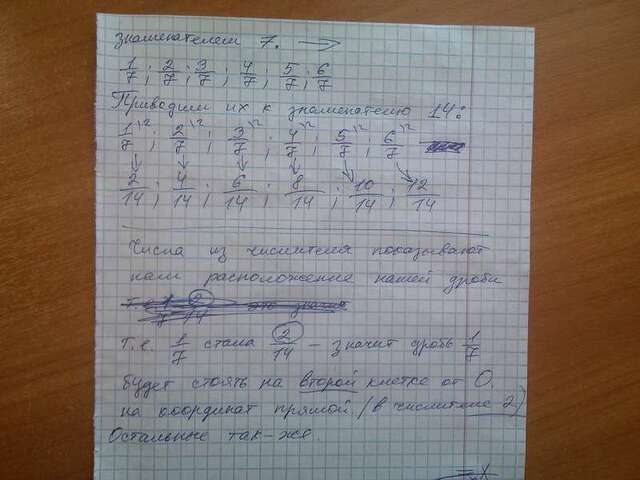 знаменателем 7. →
1/7 ; 2/7 ; 3/7 ; 4/7 ; 5/7 ; 6/7
Приводим их к знаменателю 14:
1/7 \2 ; 2/7 \2 ; 3/7 \2 ; 4/7 \2 ; 5/7 \2 ; 6/7 \2
2/14 ; 4/14 ; 6/14 ; 8/14 ; 10/14 ; 12/14
Числа из числителя показывают
нам расположение нашей дроби
т.е. 1/7 стала 2/14 – значит дробь 1/7
будет стоять на второй клетке от 0,
на координат прямой /в числителе 2)
Остальные так-же.